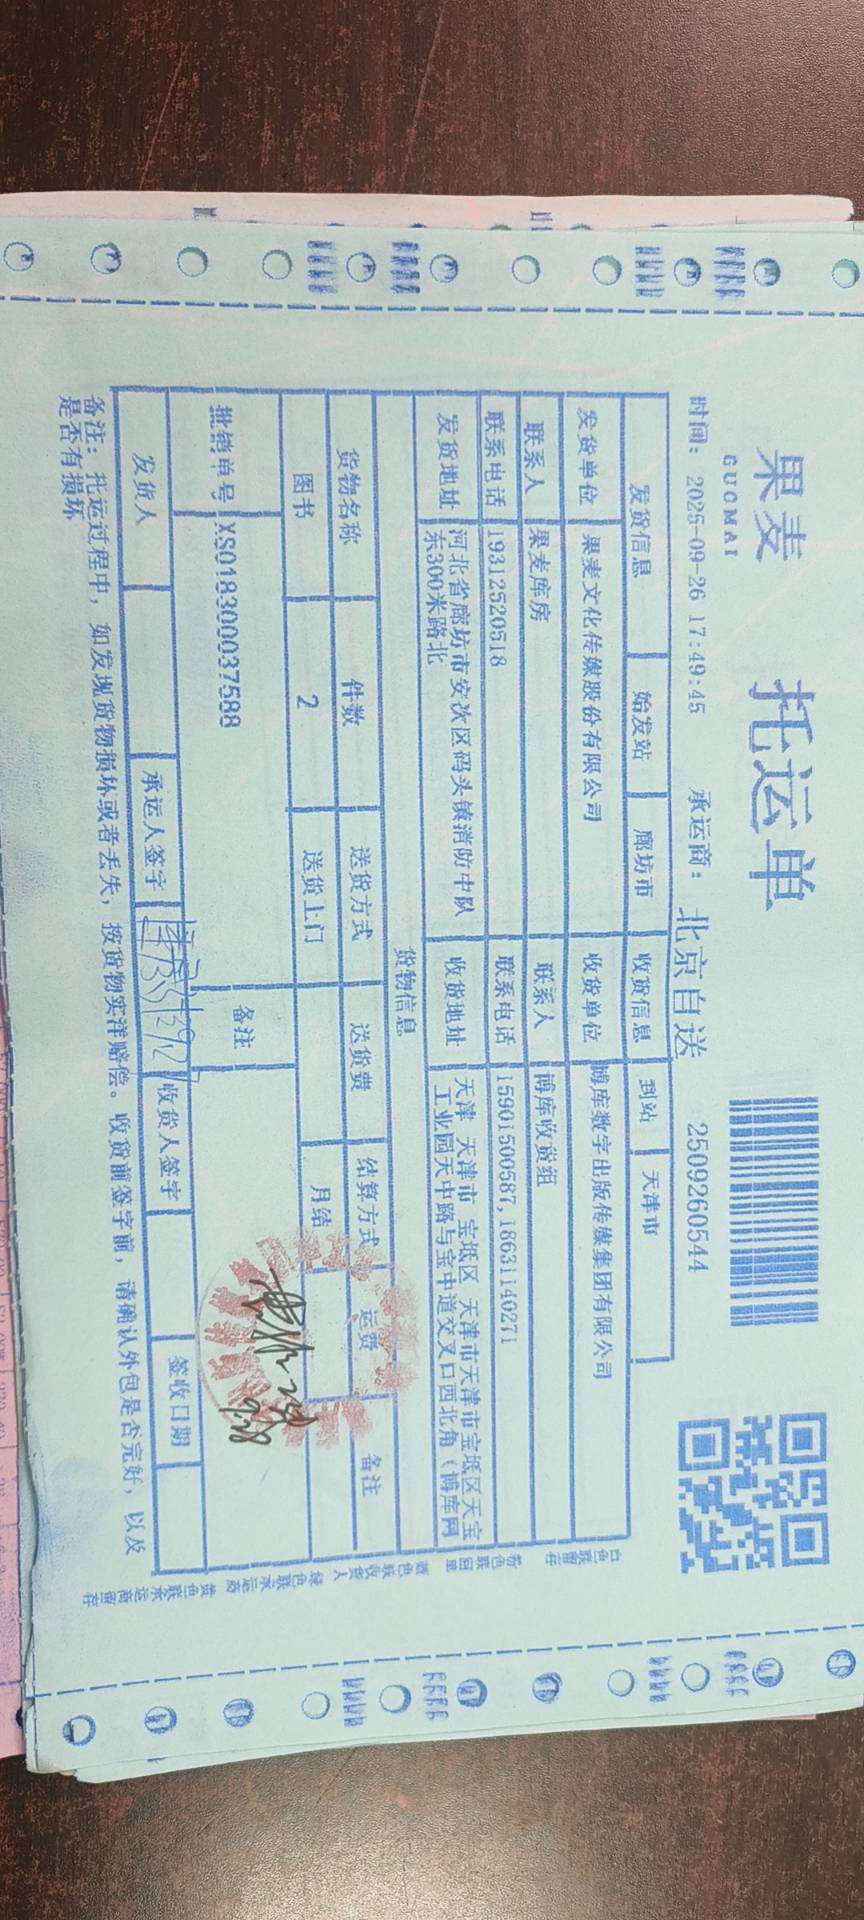 果麦
GUOMAI
托运单
时间：2025-09-26 17:49:45 承运商：北京自送 2509260544
发货信息 始发站 廊坊市 收货信息 到站 天津市
发货单位 果麦文化传媒股份有限公司 收货单位 博库数字出版传媒集团有限公司
联系人 果麦库房 联系人 博库收货组
联系电话 19312520518 联系电话 15901500587,18631140271
发货地址 河北省廊坊市安次区码头镇消防中队 收货地址 天津 天津市 宝坻区 天津市天津市宝坻区天宝
东300米路北 工业园天中路与宝中道交叉口西北角（博库网
货物信息
货物名称 件数 送货方式 送货费 结算方式 运费 备注
图书 2 送货上门 月结
批销单号 XS018300037588 备注
发货人 承运人签字 收货人签字 签收日期
备注：托运过程中，如发现货物损坏或者丢失，按货物实洋赔偿。收货前签字前，请确认外包是否完好，以及
是否有损坏
白色联留存 粉色联回单 蓝色联收货人 绿色联承运商 黄色联承运商留存